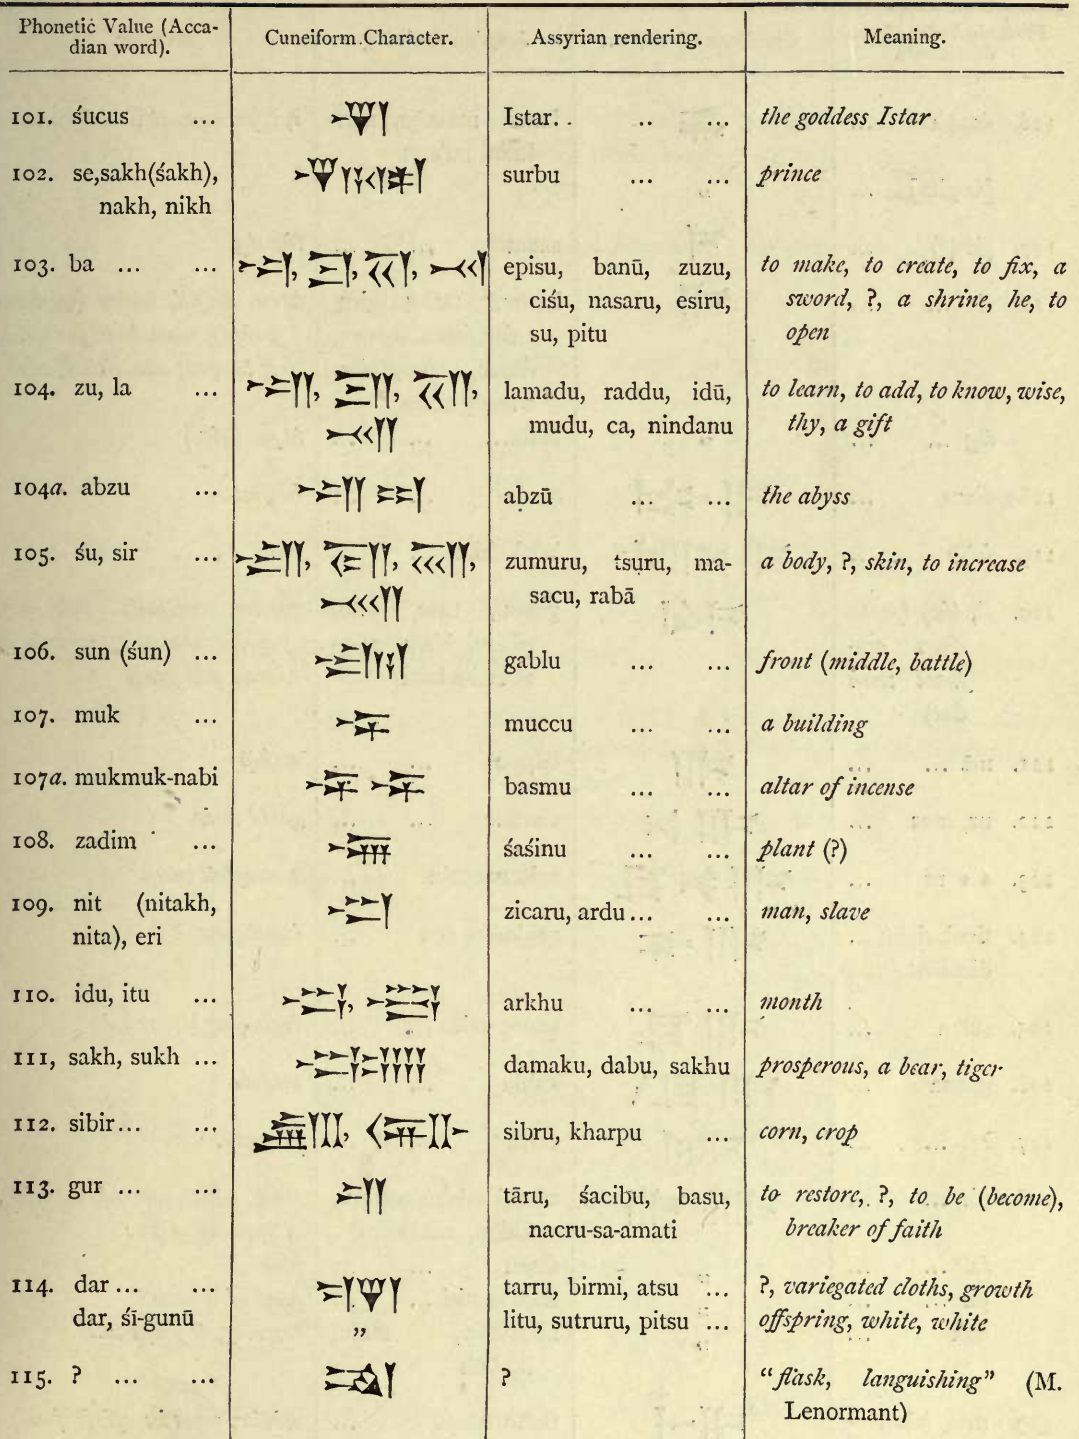 Phonetic Value (Acca-dian word). Cuneiform Character. Assyrian rendering. Meaning.
101. śucus ... Istar. . .. ... the goddess Istar
102. se,sakh(śakh), surbu ... ... prince
nakh, nikh
103. ba ... ... episu, banū, zuzu, to make, to create, to fix, a
ciśu, nasaru, esiru, sword, ?, a shrine, he, to
su, pitu open
104. zu, la ... lamadu, raddu, idū, to learn, to add, to know, wise,
mudu, ca, nindanu thy, a gift
104a. abzu ... abzū ... ... the abyss
105. śu, sir ... zumuru, tsuru, ma- a body, ?, skin, to increase
sacu, rabā
106. sun (śun) ... gablu ... ... front (middle, battle)
107. muk ... muccu ... ... a building
107a. mukmuk-nabi basmu ... ... altar of incense
108. zadim ... śaśinu ... ... plant (?)
109. nit (nitakh, zicaru, ardu ... ... man, slave
nita), eri
110. idu, itu ... arkhu ... ... month
111, sakh, sukh ... damaku, dabu, sakhu prosperous, a bear, tiger
112. sibir ... ... sibru, kharpu ... corn, crop
113. gur ... ... tāru, śacibu, basu, to restore, ?, to be (become),
nacru-sa-amati breaker of faith
114. dar ... ... tarru, birmi, atsu ... ?, variegated cloths, growth
dar, śī-gunū ,, litu, sutruru, pitsu ... offspring, white, white
115. ? ... ... ? "flask, languishing" (M.
Lenormant)